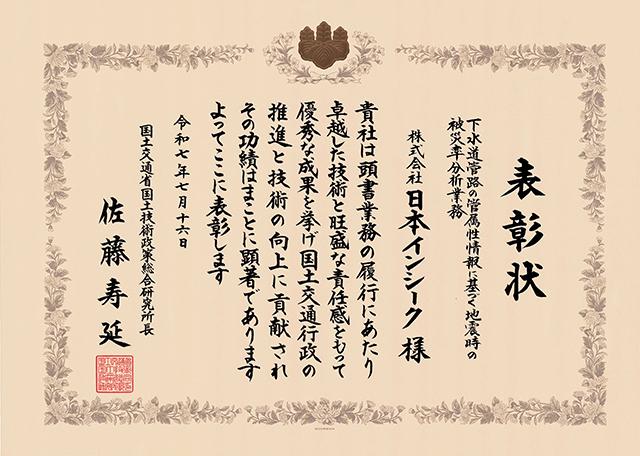 表彰状
下水道管路の管属性情報に基づく地震時の
被災率分析業務
株式会社 日本インシーク 様
貴社は頭書業務の履行にあたり
卓越した技術と旺盛な責任感をもって
優秀な成果を挙げ国土交通行政の
推進と技術の向上に貢献され
その功績はまことに顕著であります
よってここに表彰します
令和七年七月十六日
国土交通省国土技術政策総合研究所長
佐藤寿延